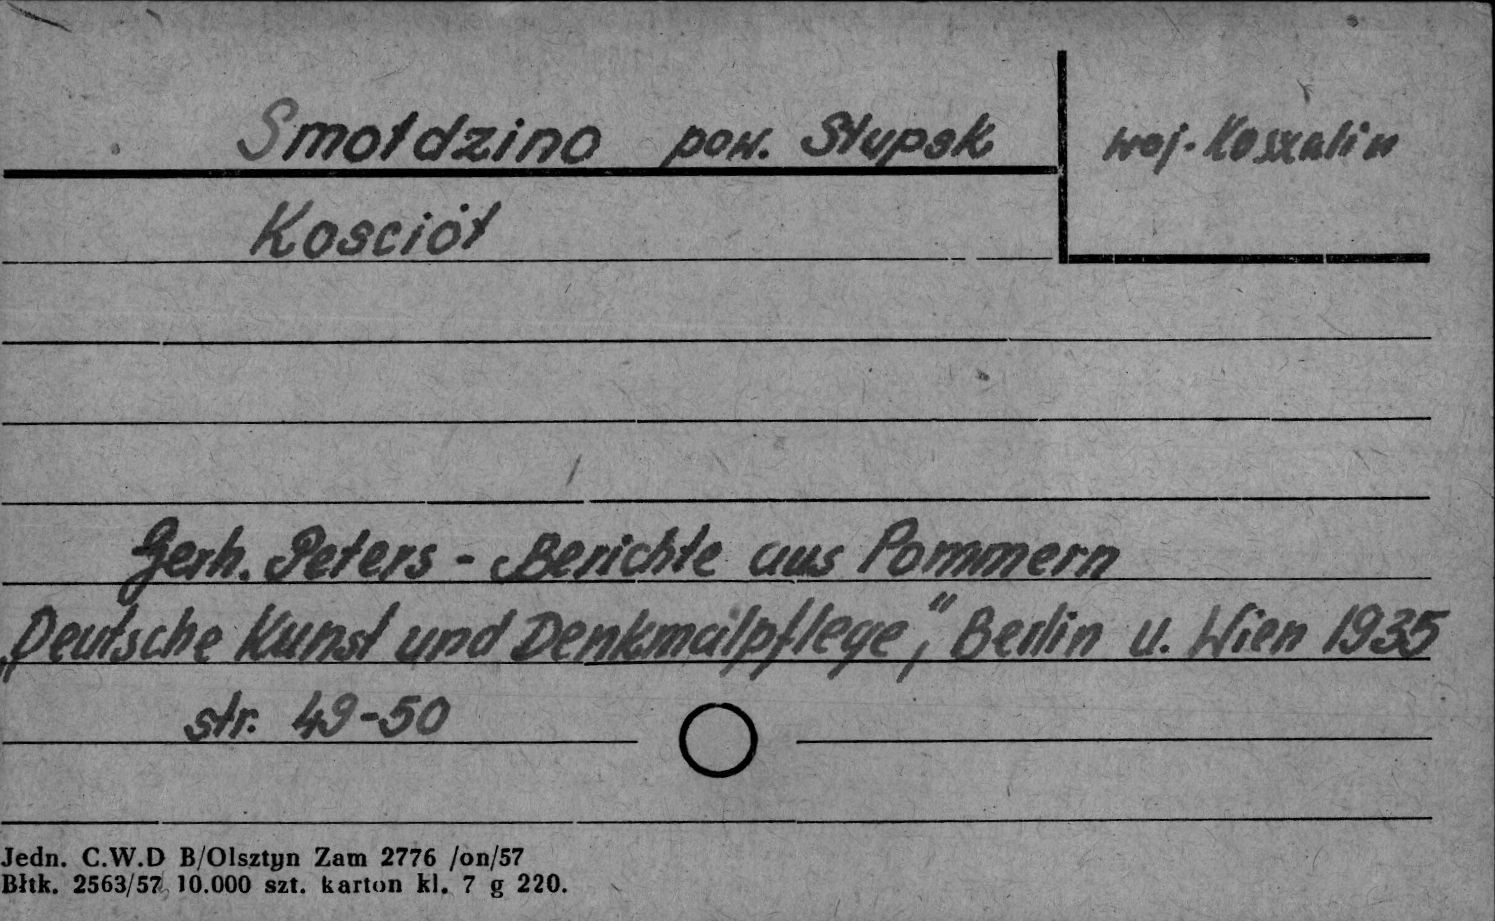 Smołdzino pow. Słupsk woj. Koszalin
Kosciół
Gerh. Peters - Berichte aus Pommern
„Deutsche Kunst und Denkmalpflege", Berlin u. Wien 1935
str. 49-50
Jedn. C.W.D B/Olsztyn Zam 2776 /on/57
Błtk. 2563/57 10.000 szt. karton kl. 7 g 220.